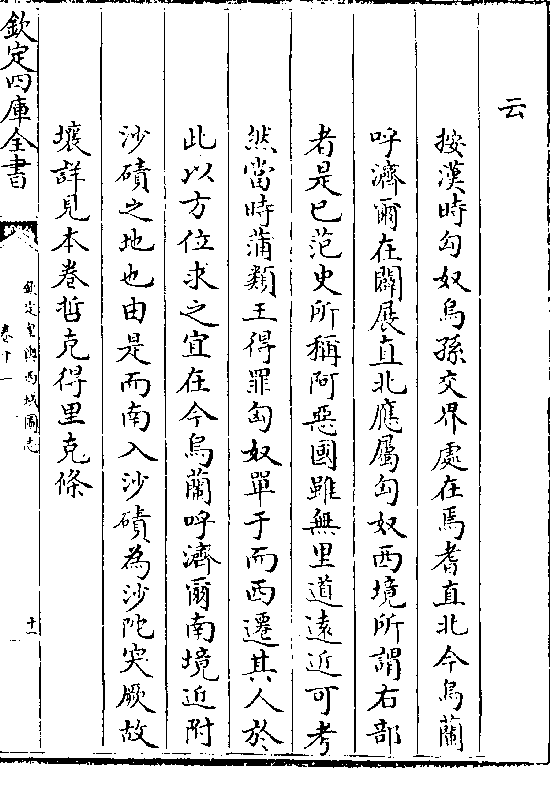 云
按漢時匈奴烏孫交界處在焉耆直北今烏蘭
呼濟爾在闢展直北應屬匈奴西境所謂右部
者是已范史所稱阿惡國雖無里道遠近可考
然當時蒲類王得罪匈奴單于而西遷其人於
此以方位求之宜在今烏蘭呼濟爾南境近附
沙磧之地也由是而南入沙磧為沙陀突厥故
壤詳見本卷哲克得里克條
欽定四庫全書
欽定皇輿西域圖志
卷十一
十一